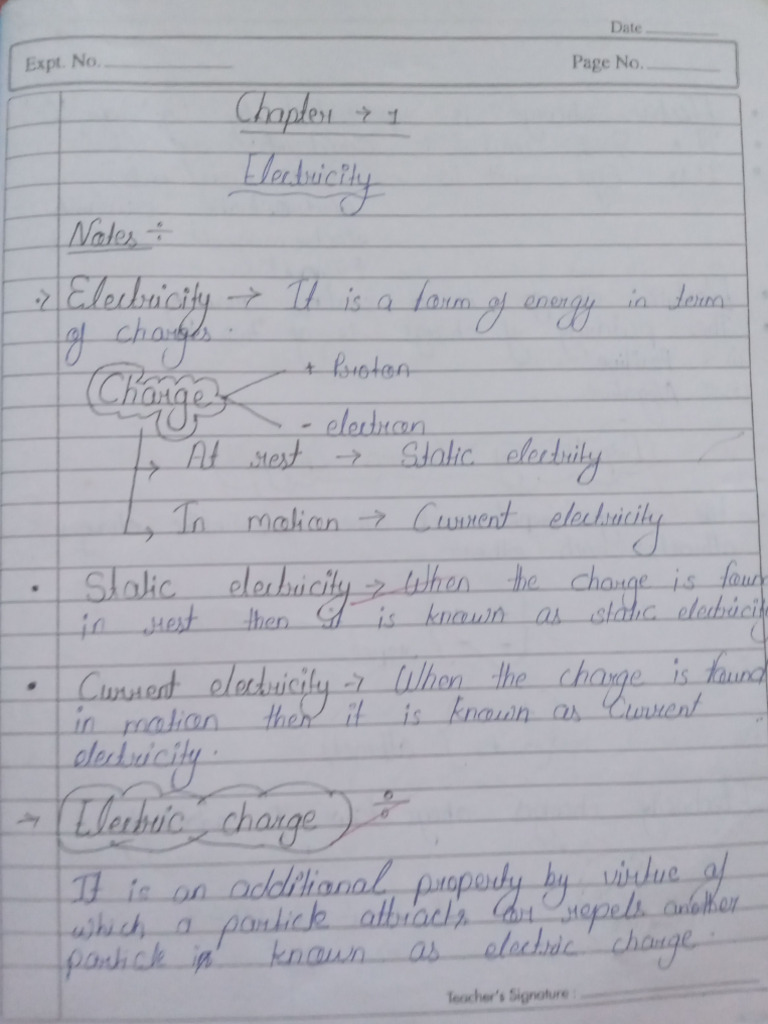 Date
Expt. No.
Page No.
Chapter → 1
Electricity
Notes ÷
→ Electricity → It is a form of energy in term
of charges.
Charge
+ Proton
- electron
→ At rest → Static electrity
→ In motion → Current electricity
• Static electricity → When the charge is foun
in rest then it is known as static electricity
• Current electricity → When the charge is found
in motion then it is known as Current
electricity.
→ Electric charge ÷
It is an additional property by virtue of
which a particle attracts or repels another
particle is known as electric charge.
Teacher's Signature :